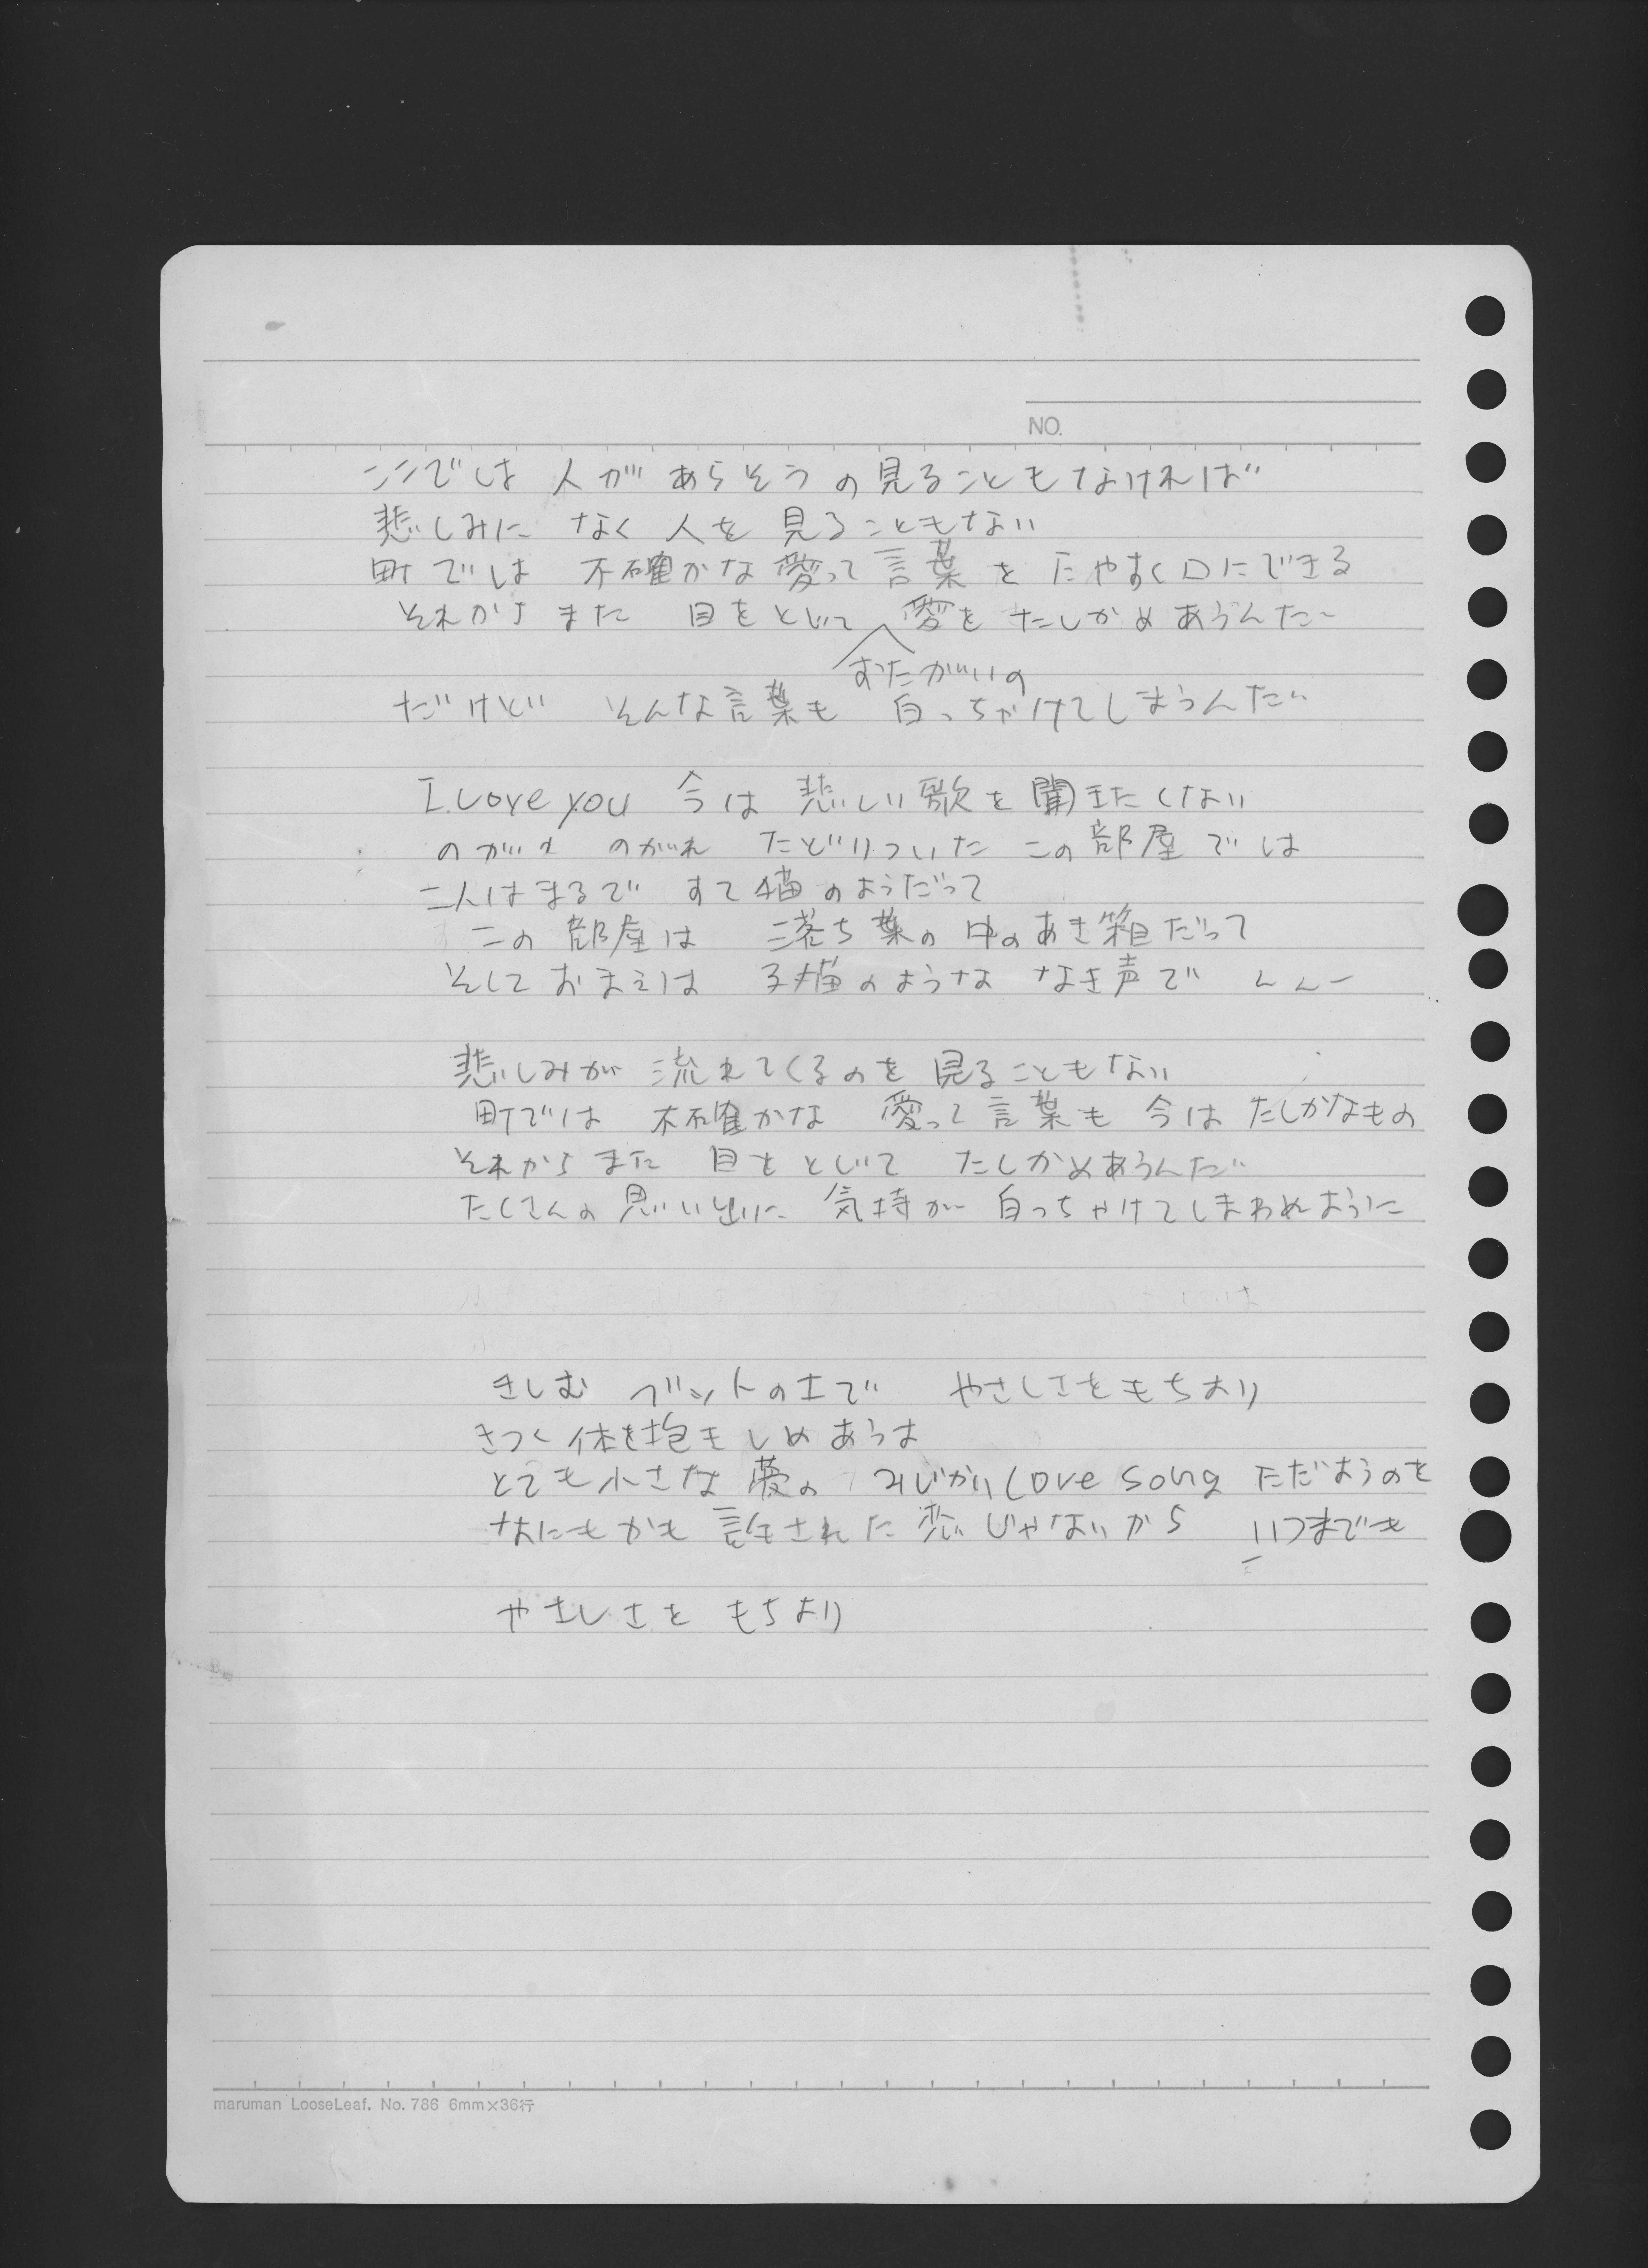 NO.
ここでは 人が あらそうの見ることもなければ
悲しみに なく 人を 見ることもない
町では 不確かな愛って言葉を たやすく口にできる
それからまた 目をとじて 愛を たしかめあうんだ
おたがいの
だけど そんな言葉も 白っちゃけてしまうんだ
I Love you 今は 悲しい歌を聞きたくない
のがれ のがれ たどりついた この部屋では
二人はまるで すて猫のようだって
この部屋は 落ち葉の中のあき箱だって
そしておまえは 子猫のような なき声で んんー
悲しみが 流れてくるのを 見ることもない
町では 不確かな 愛って言葉も 今は たしかなもの
それからまた 目をとじて たしかめあうんだ
たくさんの思い出に 気持が 白っちゃけてしまわぬように
きしむ ベットの上で やさしさをもちより
きつく体を抱きしめあうは
とても小さな夢の みじかいLove song ただようのを
なにもかも許された恋じゃないから いつまでも
やさしさを もちより
maruman LooseLeaf. No. 786 6mm×36行